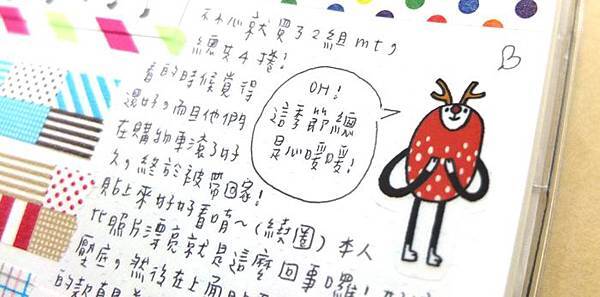 不小心就買了2組mt,
總共4捲!
看的時候覺得
還好,而且他們
在購物車滾了好
久,終於被帶回家!
貼上來好好看唷~(繞圈)本人
比照片漂亮就是這麼回事囉!
壓底,然後在上面貼
的款有
OH!
這季節總
是心暖暖!